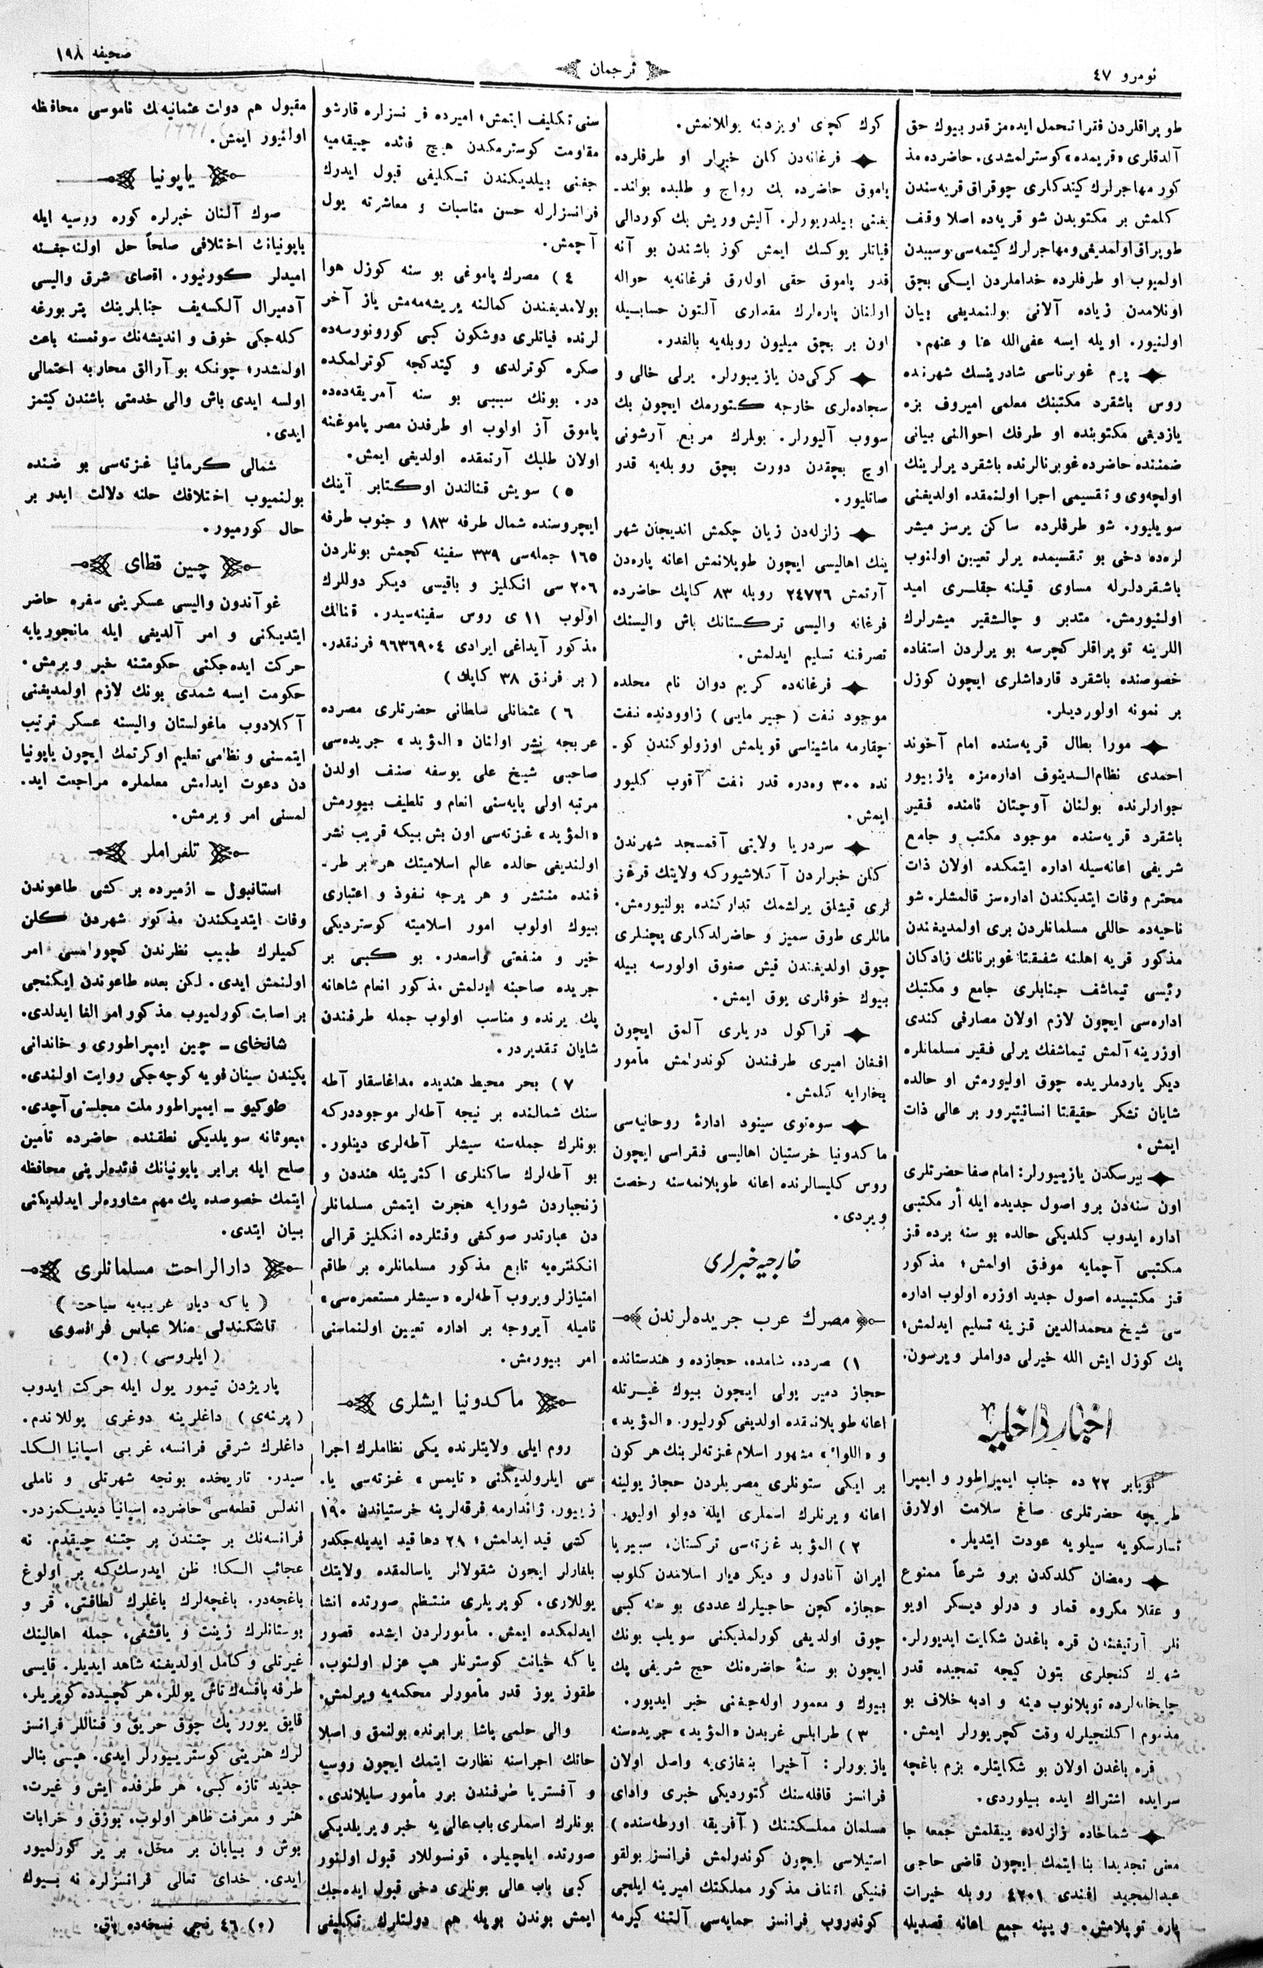 نومرو ٤٧
ترجمان
صحیفه ١٩٨
طوپراقلردن فقرا تحمل ایده‌مز قدر بیوك حق
آلدقلری «قریمده» کوسترلمشدی. حاضرده مذ
کور مهاجرلرك کیتدکاری چوقراق قریه‌سندن
کلمش بر مکتوبدن شو قریه‌ده اصلا وقف
طوپراق اولمدیغی ومهاجرلرك کیتمه‌سی بوسببدن
اولمیوب او طرفلرده خداملردن ایکی بچق
اونلامدن زیاده آلانی بولنمدیغی بیان
اولنیور. اویله ایسه عفی‌الله عنا و عنهم.
پرم غوبرناسی شادرینسك شهرنده
روس باشقرد مکتبنك معلمی امیروف بزه
یازدیغی مکتوبنده او طرفك احوالنی بیانی
ضمننده حاضرده غوبرنالرنده باشقرد یرلرینك
اولچه‌وی و تقسیمی اجرا اولنمقده اولدیغنی
سویلیور. شو طرفلرده ساکن یرسز میشر
لره‌ده دخی بو تقسیمده یرلر تعیین اولنوب
باشقردلرله مساوی قیلنه جقلری امید
اولنیورمش. متدبر و چالشقیر میشرلرك
اللرینه توپراقلر کچرسه بو یرلردن استفاده
خصوصنده باشقرد قارداشلری ایچون کوزل
بر نمونه اولوردیلر.
مورا بطال قریه‌سنده امام آخوند
احمدی نظام‌الدینوف اداره‌مزه یازیور
جوارلرنده بولنان آوچتان نامنده فقیر
باشقرد قریه‌سنده موجود مکتب و جامع
شریفی اعانه‌سیله اداره ایتمکده اولان ذات
محترم وفات ایتدیکندن اداره‌سز قالمشلر. شو
ناحیه‌ده حاللی مسلمانلردن بری اولمدیغندن
مذکور قریه اهلنه شفیقتا غوبرنانك زادکان
رئیسی تیماشف جنابلری جامع و مکتبك
اداره‌سی ایچون لازم اولان مصارفی کندی
اوزرینه آلمش تیماشفك یرلی فقیر مسلمانلره
دیکر یاردملریده چوق اولیورمش او حالده
شایان تشکر حقیقتا انسانیتپرور بر عالی ذات
ایمش.
بیرسکدن یازیبورلر: امام صفا حضرتلری
اون سنه‌دن برو اصول جدیده ایله أر مکتبی
اداره ایدوب کلدیکی حالده بو سنه برده قز
مکتبی آچمایه موفق اولمش؛ مذکور
قز مکتبیده اصول جدید اوزره اولوب اداره
سی شیخ محمدالدین قزینه تسلیم ایدلمش؛
پك کوزل ایش الله خیرلی دواملر ویرسون.
اخبار داخلیه
نویابر ٢٢ ده جناب ایمپراطور و ایمپرا
طریچه حضرتلری صاغ سلامت اولارق
تسارسکویه سیلویه عودت ایتدیلر.
رمضان کلدکدن برو شرعاً ممنوع
و عقلا مکروه قمار و درلو دیسکر اویو
نلر آرتیغندن قره باغدن شکایت ایدیورلر.
شهرك کنجلری بتون کیچه تمجیده قدر
چایخانه‌لرده توپلانوب دینه و ادبه خلاف بو
مذموم اکلنجیلرله وقت کچریورلر ایمش.
قره باغدن اولان بو شکایتلره بزم باغچه
سرایده اشتراك ایده بیلوردی.
شماخاده زلزله‌ده ییقلمش جمعه جا
معنی تجدیدا بنا ایتمك ایچون قاضی حاجی
عبدالمجید افندی ٤٢٠١ روبله خیرات
پاره توپلامش. و ینه جمع اعانه قصدیله
کرك کچی اویزدینه یوللانمش.
فرغانه‌دن کلن خبرلر او طرفلرده
پاموق حاضرده پك رواج و طلبده بولند‌-
یغنی بیلدریورلر. آلیش وریش پك کوردالی
فیاتلر یوکسك ایمش کوز باشندن بو آنه
قدر پاموق حقی اولدرق فرغانه‌یه حواله
اولنان پاره‌لرك مقداری آلتون حسابیسله
اون بر بچق میلیون روبله‌یه بالغدر.
کرکی‌دن یازیبورلر. یرلی خالی و
سجاده‌لری خارجه کتورمك ایچون پك
سووب آلیورلر. بولمرك مربع آرشونی
اوچ بچقدن دورت بچق روبله‌یه قدر
صاتلیور.
زلزله‌دن زیان چکمش اندیجان شهر
ینك اهالیسی ایچون طوپلانمش اعانه پاره‌دن
آرتمش ٢٤٧٢٦ روبله ٨٣ کاپك حاضرده
فرغانه والیسی ترکستانك باش والیسنك
تصرفنه تسلیم ایدلمش.
فرغانه‌ده کریم دوان نام محلده
موجود نفت (جیر مایی) زاوودنده نفت
چقارمه ماشیناسی قویلمش اوزولوکندن کو-
نده ٣٠٠ وه‌دره قدر نفت آقوب کلیور
ایمش.
سردریا ولایتی آقمسجد شهرندن
کلن خبرلردن آکلاشیورکه ولایتك قرقز
لری قیشلق یرلشمك تدارکنده بولنیورمش.
ماللری طوق سمیز و حاضرلدکاری پچنلری
چوق اولدیغندن قیش صغوق اولورسه بیله
بیوك خوفلری یوق ایمش.
قراکول دریلری آلمق ایچون
افغان امیری طرفندن کوندرلمش مأمور
بخارایه کلمش.
سوه‌توی سینود اداره‌ٔ روحانیه‌سی
ماکدونیا خرستیان اهالیسی فقراسی ایچون
روس کلیسالرنده اعانه طوپلانمه‌سنه رخصت
ویردی.
خارجیه خبرلری
مصرك عرب جریده‌لرندن
١) مصرده، شامده، حجازده و هندستانده
حجاز دمیر یولی ایچون بیوك غیرتله
اعانه طوپلانمقده اولدیغی کورلیور. «المؤید»
و «اللواء» مشهور اسلام غزته‌لرینك هر کون
بر ایکی ستونلری مصریلردن حجاز یولینه
اعانه ویرنلرك اسملری ایله دولو اولیور.
٢) المؤید غزته‌سی ترکستان، سیبریا
ایران آنادول و دیکر دیار اسلامدن کلوب
حجازه کچن حاجیلرك عددی بو سنه کبی
چوق اولدیغی کورلمدیکنی سویلب بونك
ایچون بو سنهٔ حاضره‌نك حج شریفی پك
بیوك و معمور اوله‌جغنی خبر ایدیور.
٣) طرابلس غربدن «المؤید» جریده‌سنه
یازیورلر: آخیرا بنغازی‌یه واصل اولان
فرانسز قافله‌سنك کتوردیکی خبری وادای
مسلمان مملکتنك (آفریقه اورطه‌سنده)
استیلاسی ایچون کوندرلمش فرانسز بولقو
فنیکی اتناف مذکور مملکتك امیرینه ایلچی
کوندروب فرانسز حمایه‌سی آلتنه کیرمه
سنی تکلیف ایتمش؛ امیرده فرانسزلره قارشو
مقاومت کوسترمکدن هیچ فائده چیقه‌میه
جغنی بیلدیکندن تکلیفی قبول ایدرك
فرانسزلرله حسن مناسبات و معاشرته یول
آچمش.
٤) مصرك پاموغی بو سنه کوزل هوا
بولامدیغندن کمالنه یریشه‌مه‌مش یاز آخر
لرنده فیاتلری دوشکون کبی کورونورسه‌ده
صکره کوترلدی و کیتدکجه کوترلمکده
در. بونك سببی بو سنه آمریقه‌ده‌ده
پاموق آز اولوب او طرفدن مصر پاموغنه
اولان طلبك آرتمقده اولدیغی ایمش.
٥) سویش قنالندن اوکتابر آینك
ایچروسنده شمال طرفه ١٨٣ و جنوب طرفه
١٦٥ جمله‌سی ٣٣٩ سفینه کچمش بونلردن
٢٠٦ سی انکلیز و باقیسی دیکر دوللرك
اولوب ١١ ی روس سفینه‌سیدر. قنالك
مذکور آیداغی ایرادی ٩٦٣٦٩٠٤ فرنقدر.
(بر فرنق ٣٨ کاپك)
٦) عثمانلی سلطانی حضرتلری مصرده
عربجه نشر اولنان «المؤید» جریده‌سی
صاحبی شیخ علی یوسفه صنف اولدن
مرتبه اولی پایه‌سنی انعام و تلطیف بیورمش
«المؤید» غزته‌سی اون بش بیکه قریب نشر
اولندیغی حالده عالم اسلامیتك هر بر طر-
فنده منتشر و هر یرجه نفوذ و اعتباری
بیوك اولوب امور اسلامیته کوستردیکی
خیر و منفعتی واسعدر. بو کبی بر
جریده صاحبنه ایدلمش مذکور انعام شاهانه
پك یرنده و مناسب اولوب جمله طرفندن
شایان تقدیردر.
٧) بحر محیط هندیده مداغاسقار آطه
سنك شمالنده بر نیجه آطه‌لر موجوددرکه
بونلرك جمله‌سنه سیشلر آطه‌لری دینلور.
بو آطه‌لرك ساکنلری اکثریتله هنددن و
زنجباردن شورایه هجرت ایتمش مسلمانلر
دن عبارتدر صوکغی وقتلرده انکلیز قرالی
انکلتره‌یه تابع مذکور مسلمانلره بر طاقم
امتیازلر ویروب آطه‌لره «سیشلر مستعمره‌سی»
نامیله آیروجه بر اداره تعیین اولنماسنی
امر بیورمش.
ماکدونیا ایشلری
روم ایلی ولایتلرنده یکی نظاملرك اجرا
سی ایلرولدیکنی «تایمس» غزته‌سی یا-
زیور. ژاندارمه فرقه‌لرینه خرستیاندن ١٩٠
کشی قید ایدلمش؛ ٢٩ دها قید ایدیله‌جکدر
بلغارلر ایچون شقولالر یاسالمقده ولایتك
یوللاری، کوپریلری منتظم صورتده انشا
ایدلمکده ایمش. مأمورلردن ایشده قصور
یاکه خیانت کوسترنلر هپ عزل اولنوب،
طقوز یوز قدر مأمورلر محکمه‌یه ویرلمش.
والی حلمی پاشا برابرنده بولنمق و اصلا
حاتك اجراسنه نظارت ایتمك ایچون روسیه
و آفستریا طرفندن برر مأمور سایلاندی.
بونلرك اسملری باب عالی یه خبر ویریلدیکی
صورتده ایلچیلر. قونسوللار قبول اولنور
کبی باب عالی بونلری دخی قبول ایده‌جك
ایمش بوندن بویله هم دولتلرك تکلیفی
مقبول هم دولت عثمانیه‌نك ناموسی محافظه
اولنیور ایمش.
یاپونیا
صوك آلنان خبرلره کوره روسیه ایله
یاپونیانك اختلافی صلحاً حل اولنه‌جغنه
امیدلر کورنیور. اقصای شرق والیسی
آدمیرال آلکسه‌یف جنابلرینك پتربورغه
کله‌جکی خوف و اندیشه‌نك سونمسنه باعث
اولمشدر؛ چونکه بو آرالق محاربه احتمالی
اولسه ایدی باش والی خدمتی باشندن کیتمز
ایدی.
شمالی کرمانیا غزته‌سی بو ضنده
بولنمیوب اختلافك حلنه دلالت ایدر بر
حال کورمیور.
چین قطای
غوآندون والیسی عسکرینی سفره حاضر
ایتدیکنی و امر آلدیغی ایله مانجوریایه
حرکت ایده‌جکنی حکومتنه خبر ویرمش.
حکومت ایسه شمدی بونك لازم اولمدیغنی
آکلادوب ماغولستان والیسنه عسکر ترتیب
ایتمسنی و نظامی تعلیم اوکرتمك ایچون یاپونیا
دن دعوت ایدلمش معلملره مراجعت اید-
لمسنی امر ویرمش.
تلغراملر
استانبول – ازمیرده بر کشی طاعوندن
وفات ایتدیکندن مذکور شهردن کلن
کمیلرك طبیب نظرندن کچورلمسی امر
اولنمش ایدی. لکن بعده طاعوندن ایکنجی
بر اصابت کورلمیوب مذکور امر الغا ایدلدی.
شانخای – چین ایمپراطوری و خاندانی
پکیندن سینان فویه کوچه‌جکی روایت اولندی.
طوکیو – ایمپراطور ملت مجلسنی آچدی.
مبعوثانه سویلدیکی نطقنده حاضرده تأمین
صلح ایله برابر یاپونیانك فائده‌لرینی محافظه
ایتمك خصوصده پك مهم مشاوره‌لر ایدلدیکنی
بیان ایتدی.
دارالراحت مسلمانلری
(یاکه دیار غریبه‌یه سیاحت)
تاشکندلی منلا عباس فرانسوی
(ایلروسی) (٥)
پاریژدن تیمور یول ایله حرکت ایدوب
(پرنه‌ی) داغلرینه دوغری یوللاندم.
داغلرك شرقی فرانسه، غربی اسپانیا الکا-
سیدر. تاریخده بونجه شهرتلی و ناملی
اندلس قطعه‌سی حاضرده اسپانیا دیدیکمزدر.
فرانسه‌نك بر چتندن بر چتنه چیقدم. نه
عجائب الکا؛ ظن ایدرسك‌که بر اولوغ
باغچه‌در. باغچه‌لرك باغلرك لطافتی، قر و
بوستانلرك زینت و یاقشغی، جمله اهالینك
غیرتلی و کامل اولدیغینه شاهد ایدیلر. قایسی
طرفه باقسه‌ك تاش یوللر، هر کچیدده کوپریلر،
قایق یورر پك چوق حریق و قناللر فرانسز
لرك هنرینی کوستریبورلر ایدی. هپسی بنالر
جدید تازه کبی، هر طرفده ایش و غیرت،
هنر و معرفت ظاهر اولوب. بوزق و خرابات
بوش و بیابان بر محل، بر یر کورلمیور
ایدی. خدای تعالی فرانسزلره نه بیوك
(٥) ٤٦ نجی نسخه‌ده باق.